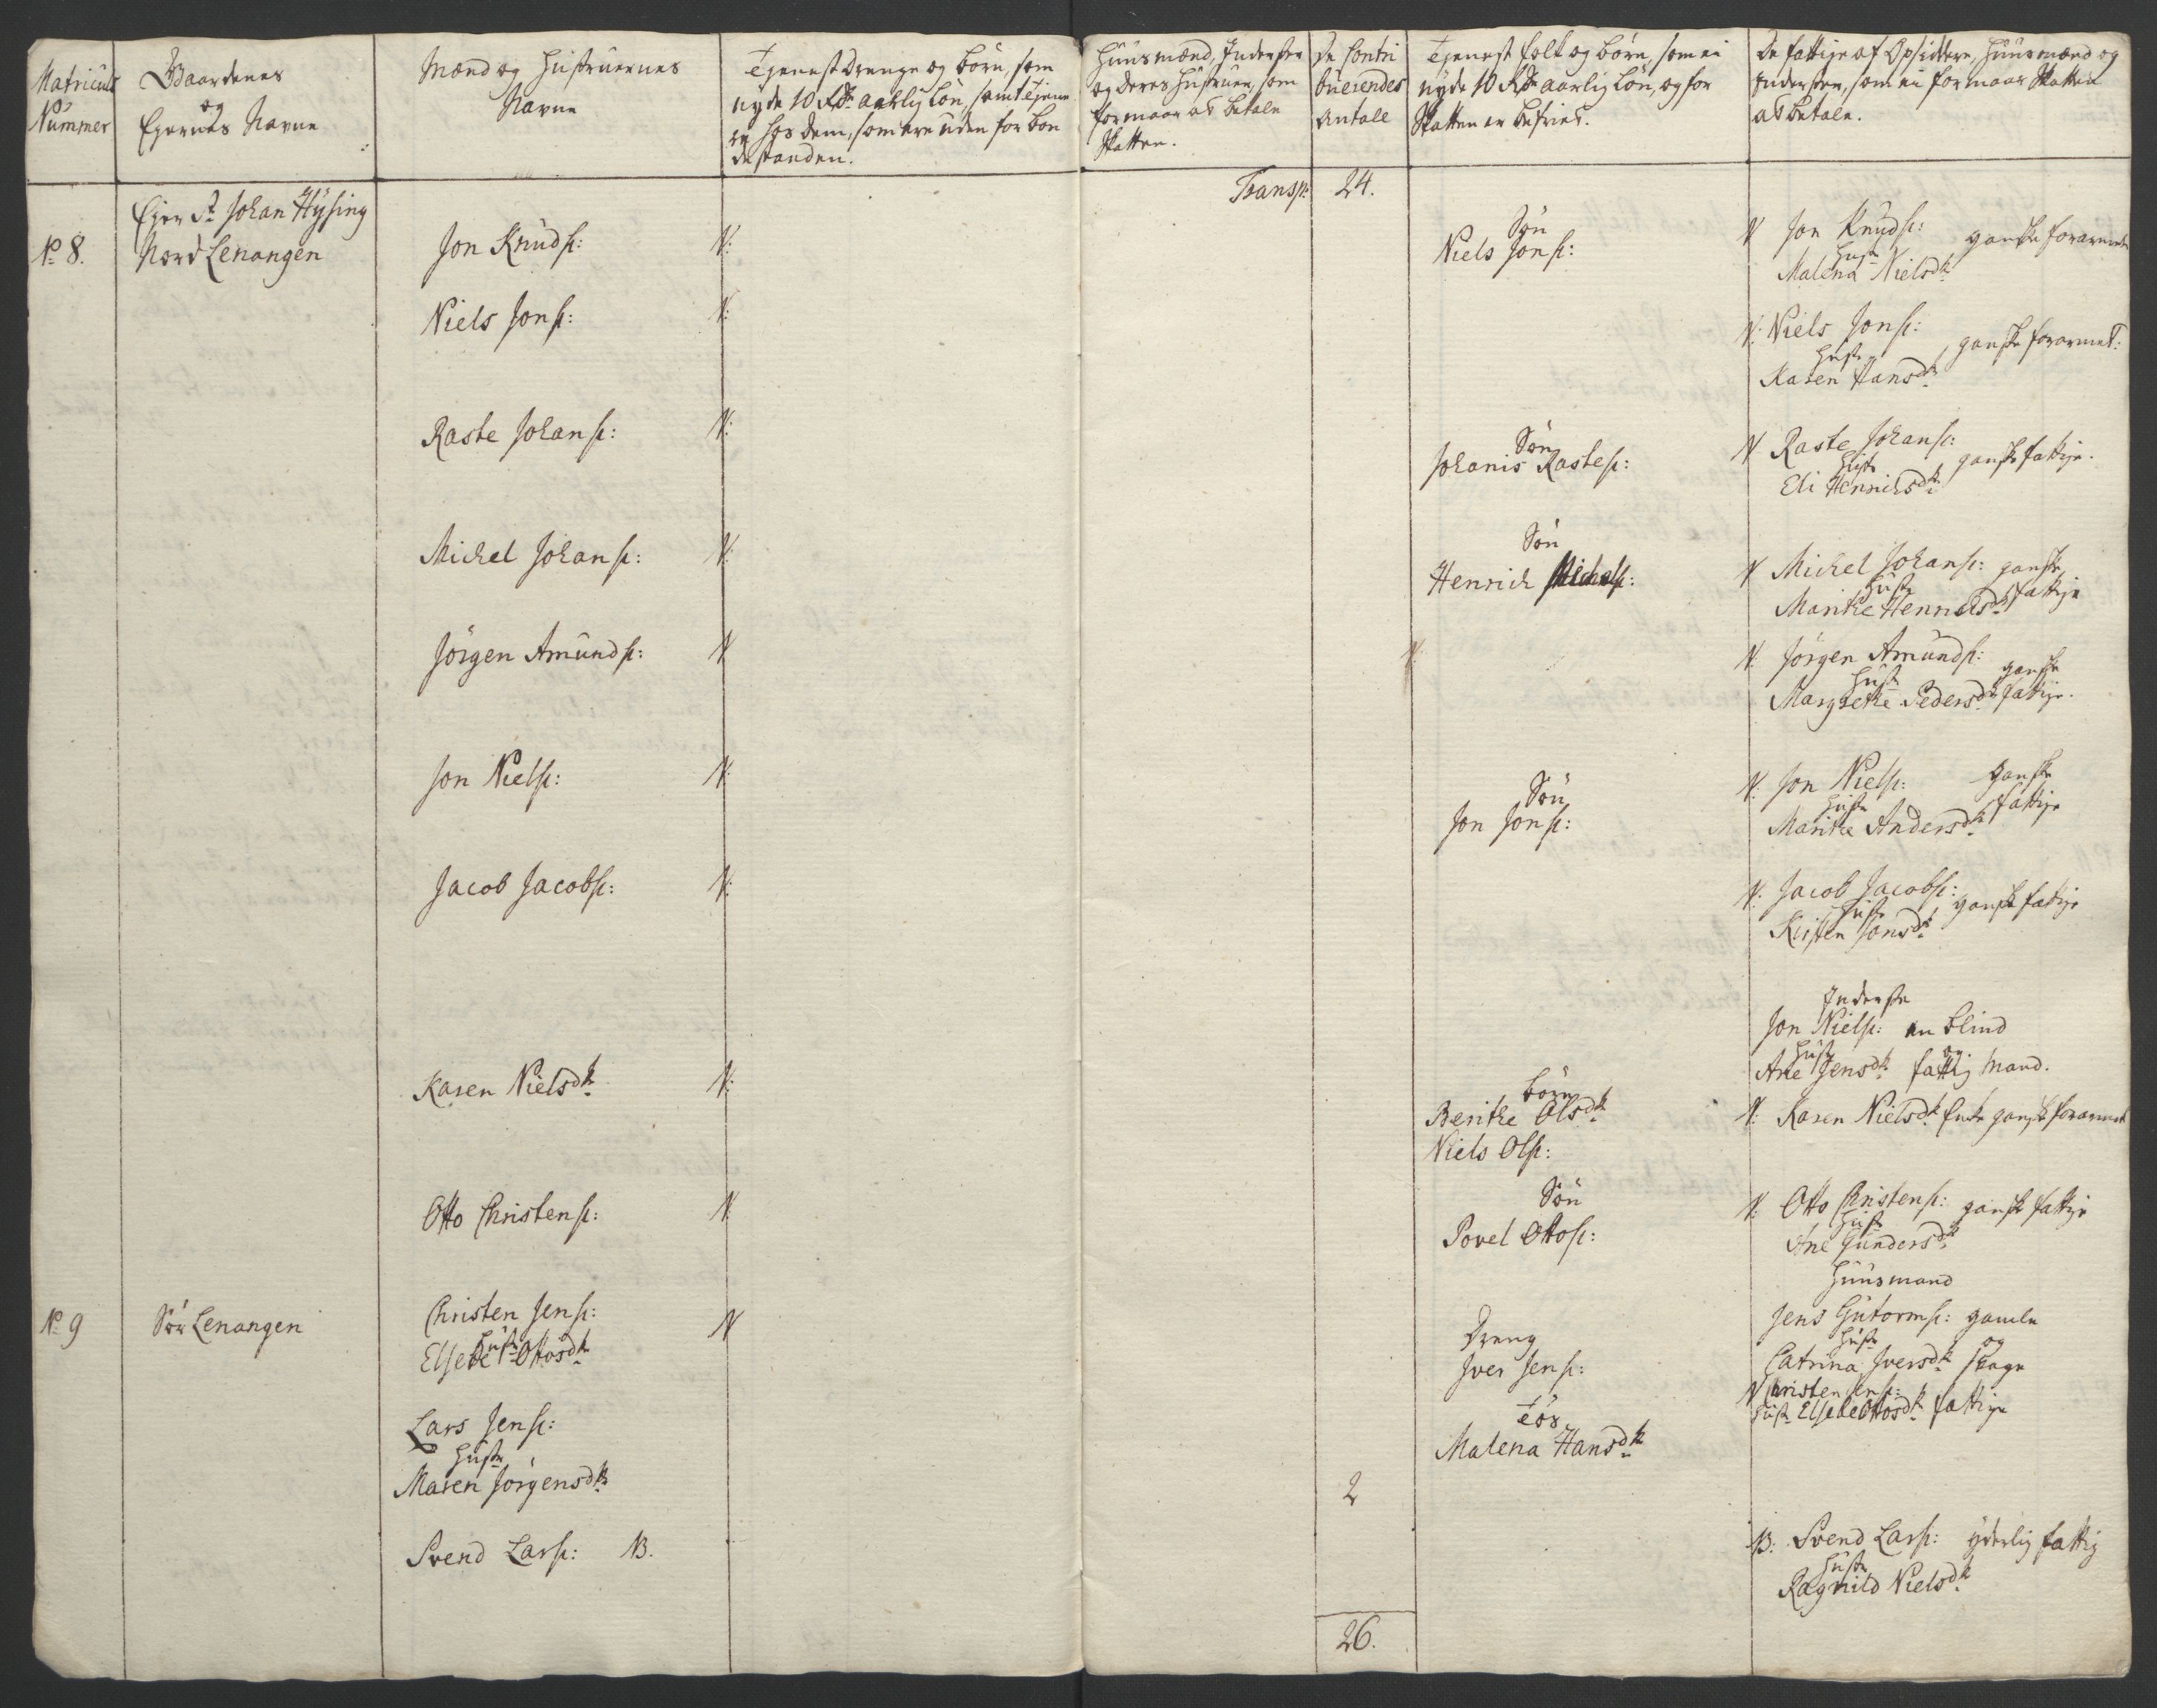 Matriculs
Nummer
Gaardenes
og
Ejernes Navne
Mænd og Hustruernes
Navne
Tjenest Drenge og børn, som
nyde 10 Rdr aarlig Lön, samt tjene
re hos dem, som ere uden for bon
destanden.
Huusmænd, Inderster
og deres Hustruer, som
formaar at betale
Skatten.
De Contri
buerendes
Antall
Tjenest folk og børn, som ei
nyde 10 Rdr aarlig Lön, og for
Skatten er befriet.
De fattige af Opsiddere, Huusmænd og
Inderster, som ei formaar Skatten
at betale.
Transp: 24.
Ejer Sr Johan Hysing
No 8. Nord Lenangen
Jon Knuds: N:
Søn
Niels Jons:
N Jon Knuds: ganske forarmede
Hustr
Malena Nielsdr
Niels Jons: N:
N: Niels Jons: ganske forarmet:
Hustr
Karen Hansdr
Raste Johans: N:
Søn
Johanis Rastes:
N Raste Johans: ganske fattige.
Hustr
Eli Henrichsdr
Michel Johans: N:
Søn
Henrich Michels:
N Michel Johans: ganske
Hustr fattige
Marithe Henricsdr
Jörgen Amunds: N
N:
N: Jörgen Amunds: ganske
Hustr
Margrethe Pedersdr fattige.
Jon Niels: N:
Søn
Jon Jons:
N: Jon Niels: ganske
Hustr fattige
Marithe Andersdr
Jacob Jacobs: N:
N: Jacob Jacobs: ganske fattige
Hustr
Kirsten Jonsdr
Inderste
Jon Niels: en blind
Hustr og
Ane Jensdr fattig Mand.
Karen Nielsdr N:
børn
Berithe Olsdr
Niels Ols:
N: Karen Nielsdr Enke ganske forarmet
Otto Christens: N:
Søn
Povel Ottos:
N: Otto Christens: ganske fattige
Hustr
Ane Gundersdr
Huusmand
No 9 Sør Lenangen
Christen Jens: N
Hustr
Elsebe Ottosdr
Dreng
Iver Jens:
Jens Gutorms: gamle
Hustr og
Catrina Iversdr svage
N Christen Jens:
Hustr Elsebe Ottosdr fattige
Lars Jens:
Hustr
Maren Jörgensdr
Tös
Malena Hansdr
2
Svend Lars: NB.
NB: Svend Lars: yderlig fattig
Hustr
Ragnild Nielsdr
26.